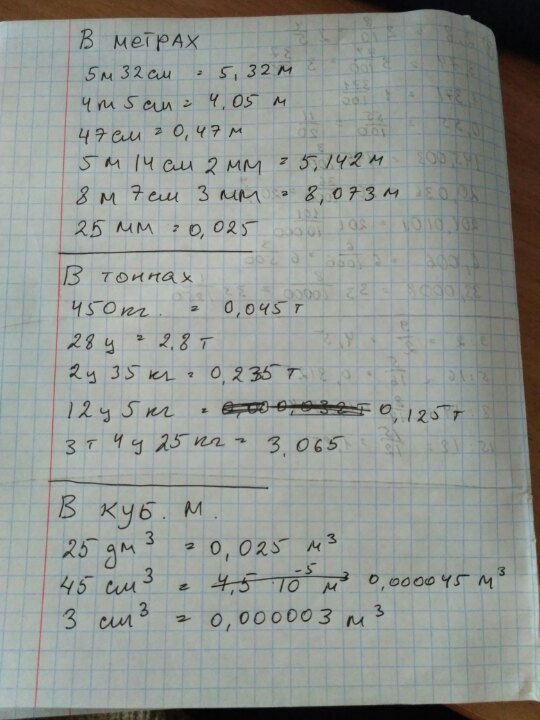 В метрах
5м 32см = 5,32 м
4м 5см = 4,05 м
47см = 0,47м
5 м 14см 2 мм = 5,142 м
8 м 7см 3 мм = 8,073 м
25 мм = 0,025
В тоннах
450кг. = 0,045 т
28 ц = 2,8 т
2ц 35 кг = 0,235 т
12 ц 5 кг = 0,125 т
3 т 4 ц 25 кг = 3,065
В куб. м.
25 дм³ = 0,025 м³
45 см³ = 4,5 10⁻⁵ м³ 0,000045 м³
3 см³ = 0,000003 м³